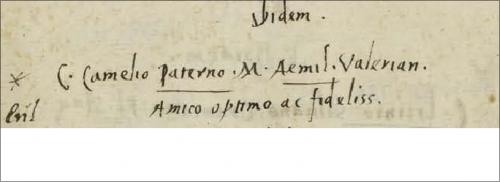 Ibidem.
* C. Camelio Paterno. M. Aemil. Valerian.
Amico optimo ac fideliss.